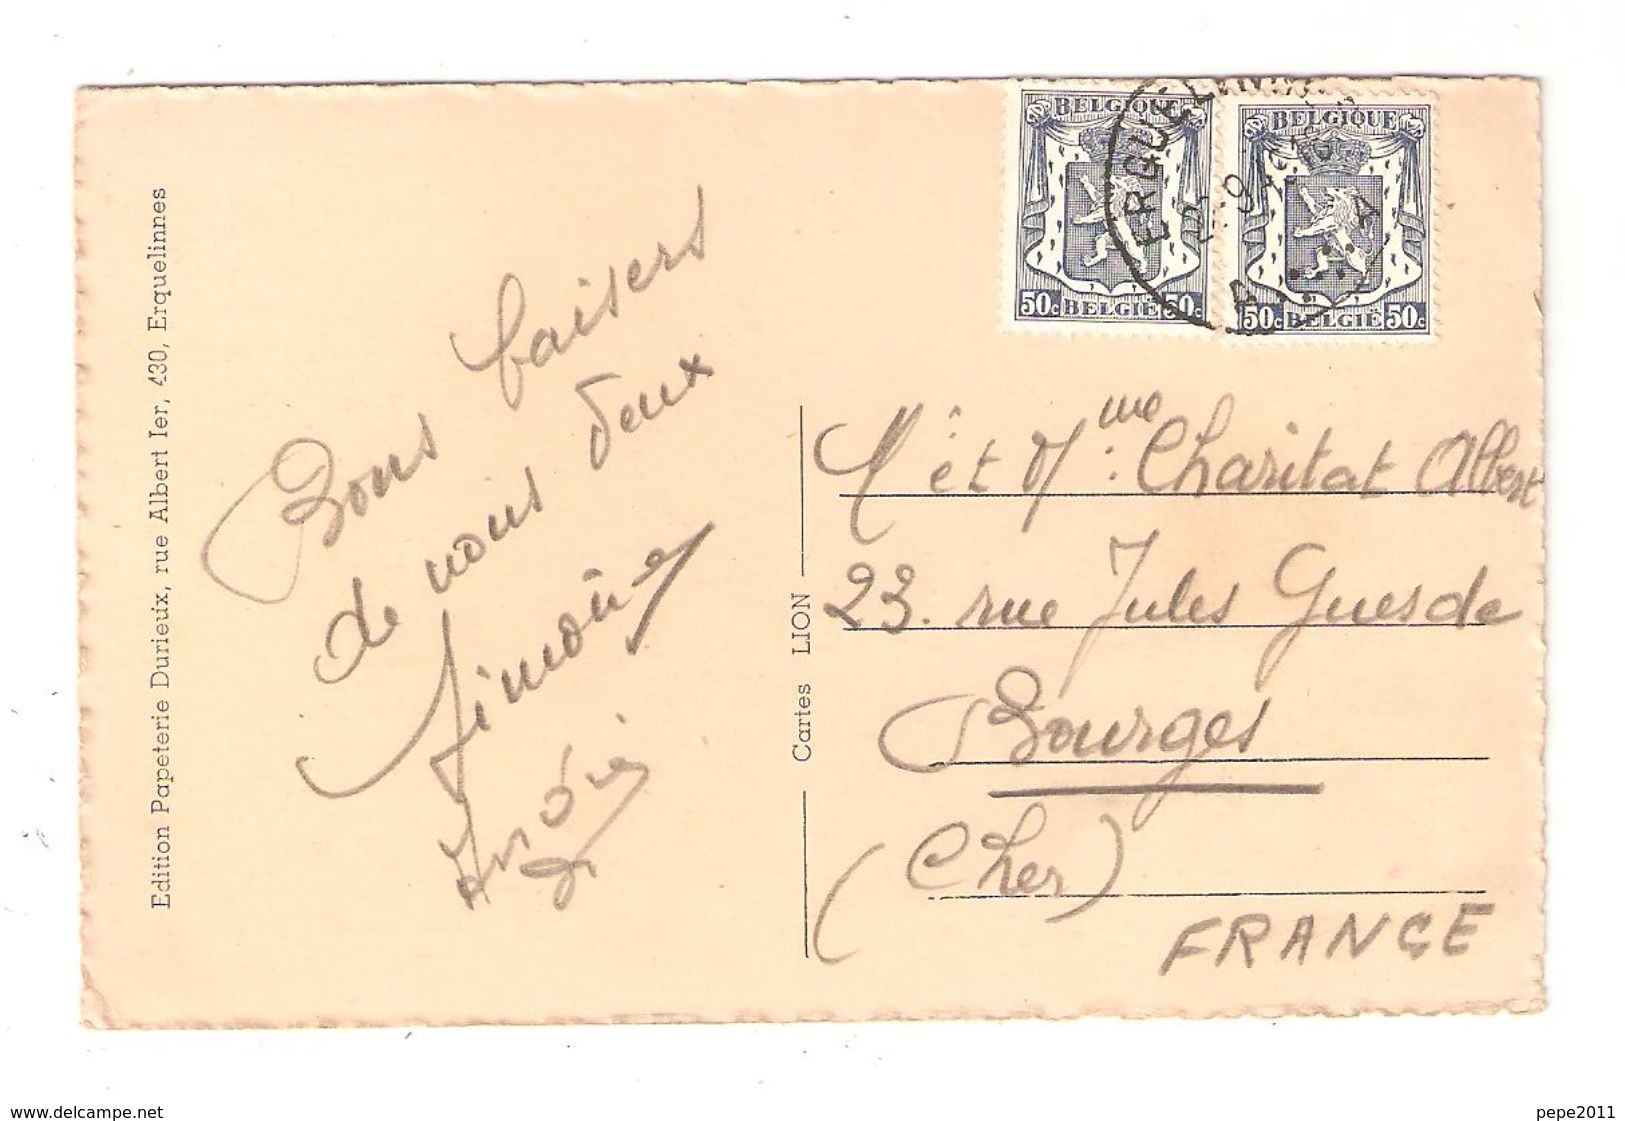 Edition Papeterie Durieux, rue Albert Ier, 430, Erquelinnes
Bons baisers
de nous deux
Simone
BELGIQUE
50c BELGIË 50c
BELGIQUE
50c BELGIË 50c
ERQUELINNES
A A
Cartes LION
M. et Mme Charitat Albert
23. rue Jules Guesde
Bourges
(Cher)
FRANCE
www.delcampe.net
pepe2011